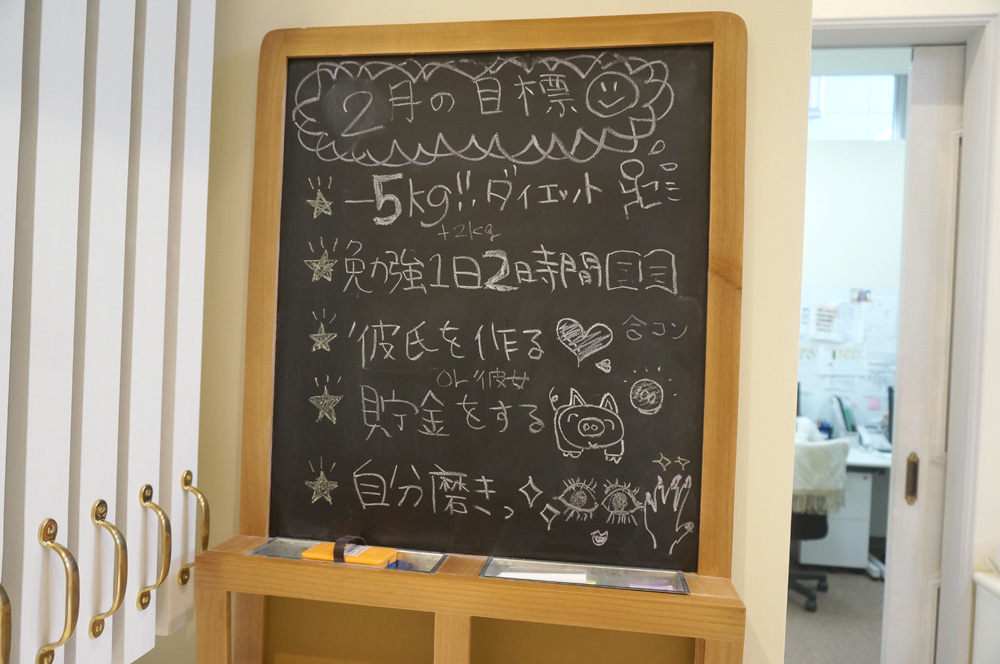 2月の目標
-5kg!! ダイエット
+2kg
勉強1日2時間
彼氏を作る 合コン
or 彼女
貯金をする 100
自分磨きっ